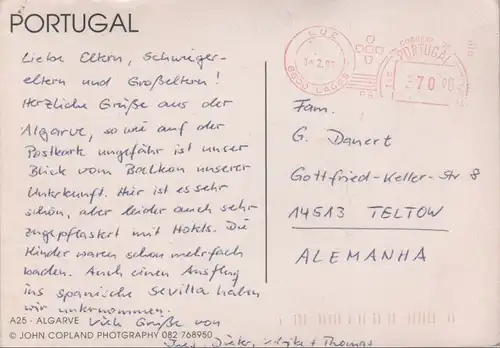 PORTUGAL
Liebe Eltern, Schwieger-
eltern und Großeltern!
Herzliche Grüße aus der
Algarve, so wie auf der
Postkarte ungefähr ist unser
Blick vom Balkon unserer
Unterkunft. Hier ist es sehr
schön, aber leider auch sehr
zugepflastert mit Hotels. Die
Kinder waren schon mehrfach
baden. Auch einen Ausflug
ins spanische Sevilla haben
wir unternommen.
Viele Grüße von
Dieter, + Thomas
A25 - ALGARVE
© JOHN COPLAND PHOTOGRAPHY 082 768950
LUZ
8600 LAGOS
CORREIO
PORTUGAL
70
Fam.
G. Danert
Gottfried-Keller-Str 8
14513 TELTOW
ALEMANHA